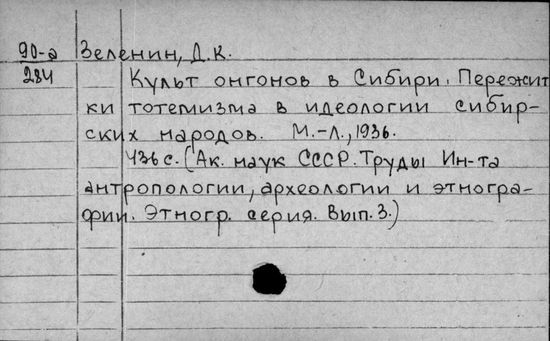 90-а Зеленин, Д.К.
284 Культ онгонов в Сибири. Пережит
ки тотемизма в идеологии сибир-
ских народов. М.-Л., 1936.
436 с. (Ак. наук СССР. Труды Ин-та
антропологии, археологии и этногра-
фии. Этногр. серия. Вып. 3.)